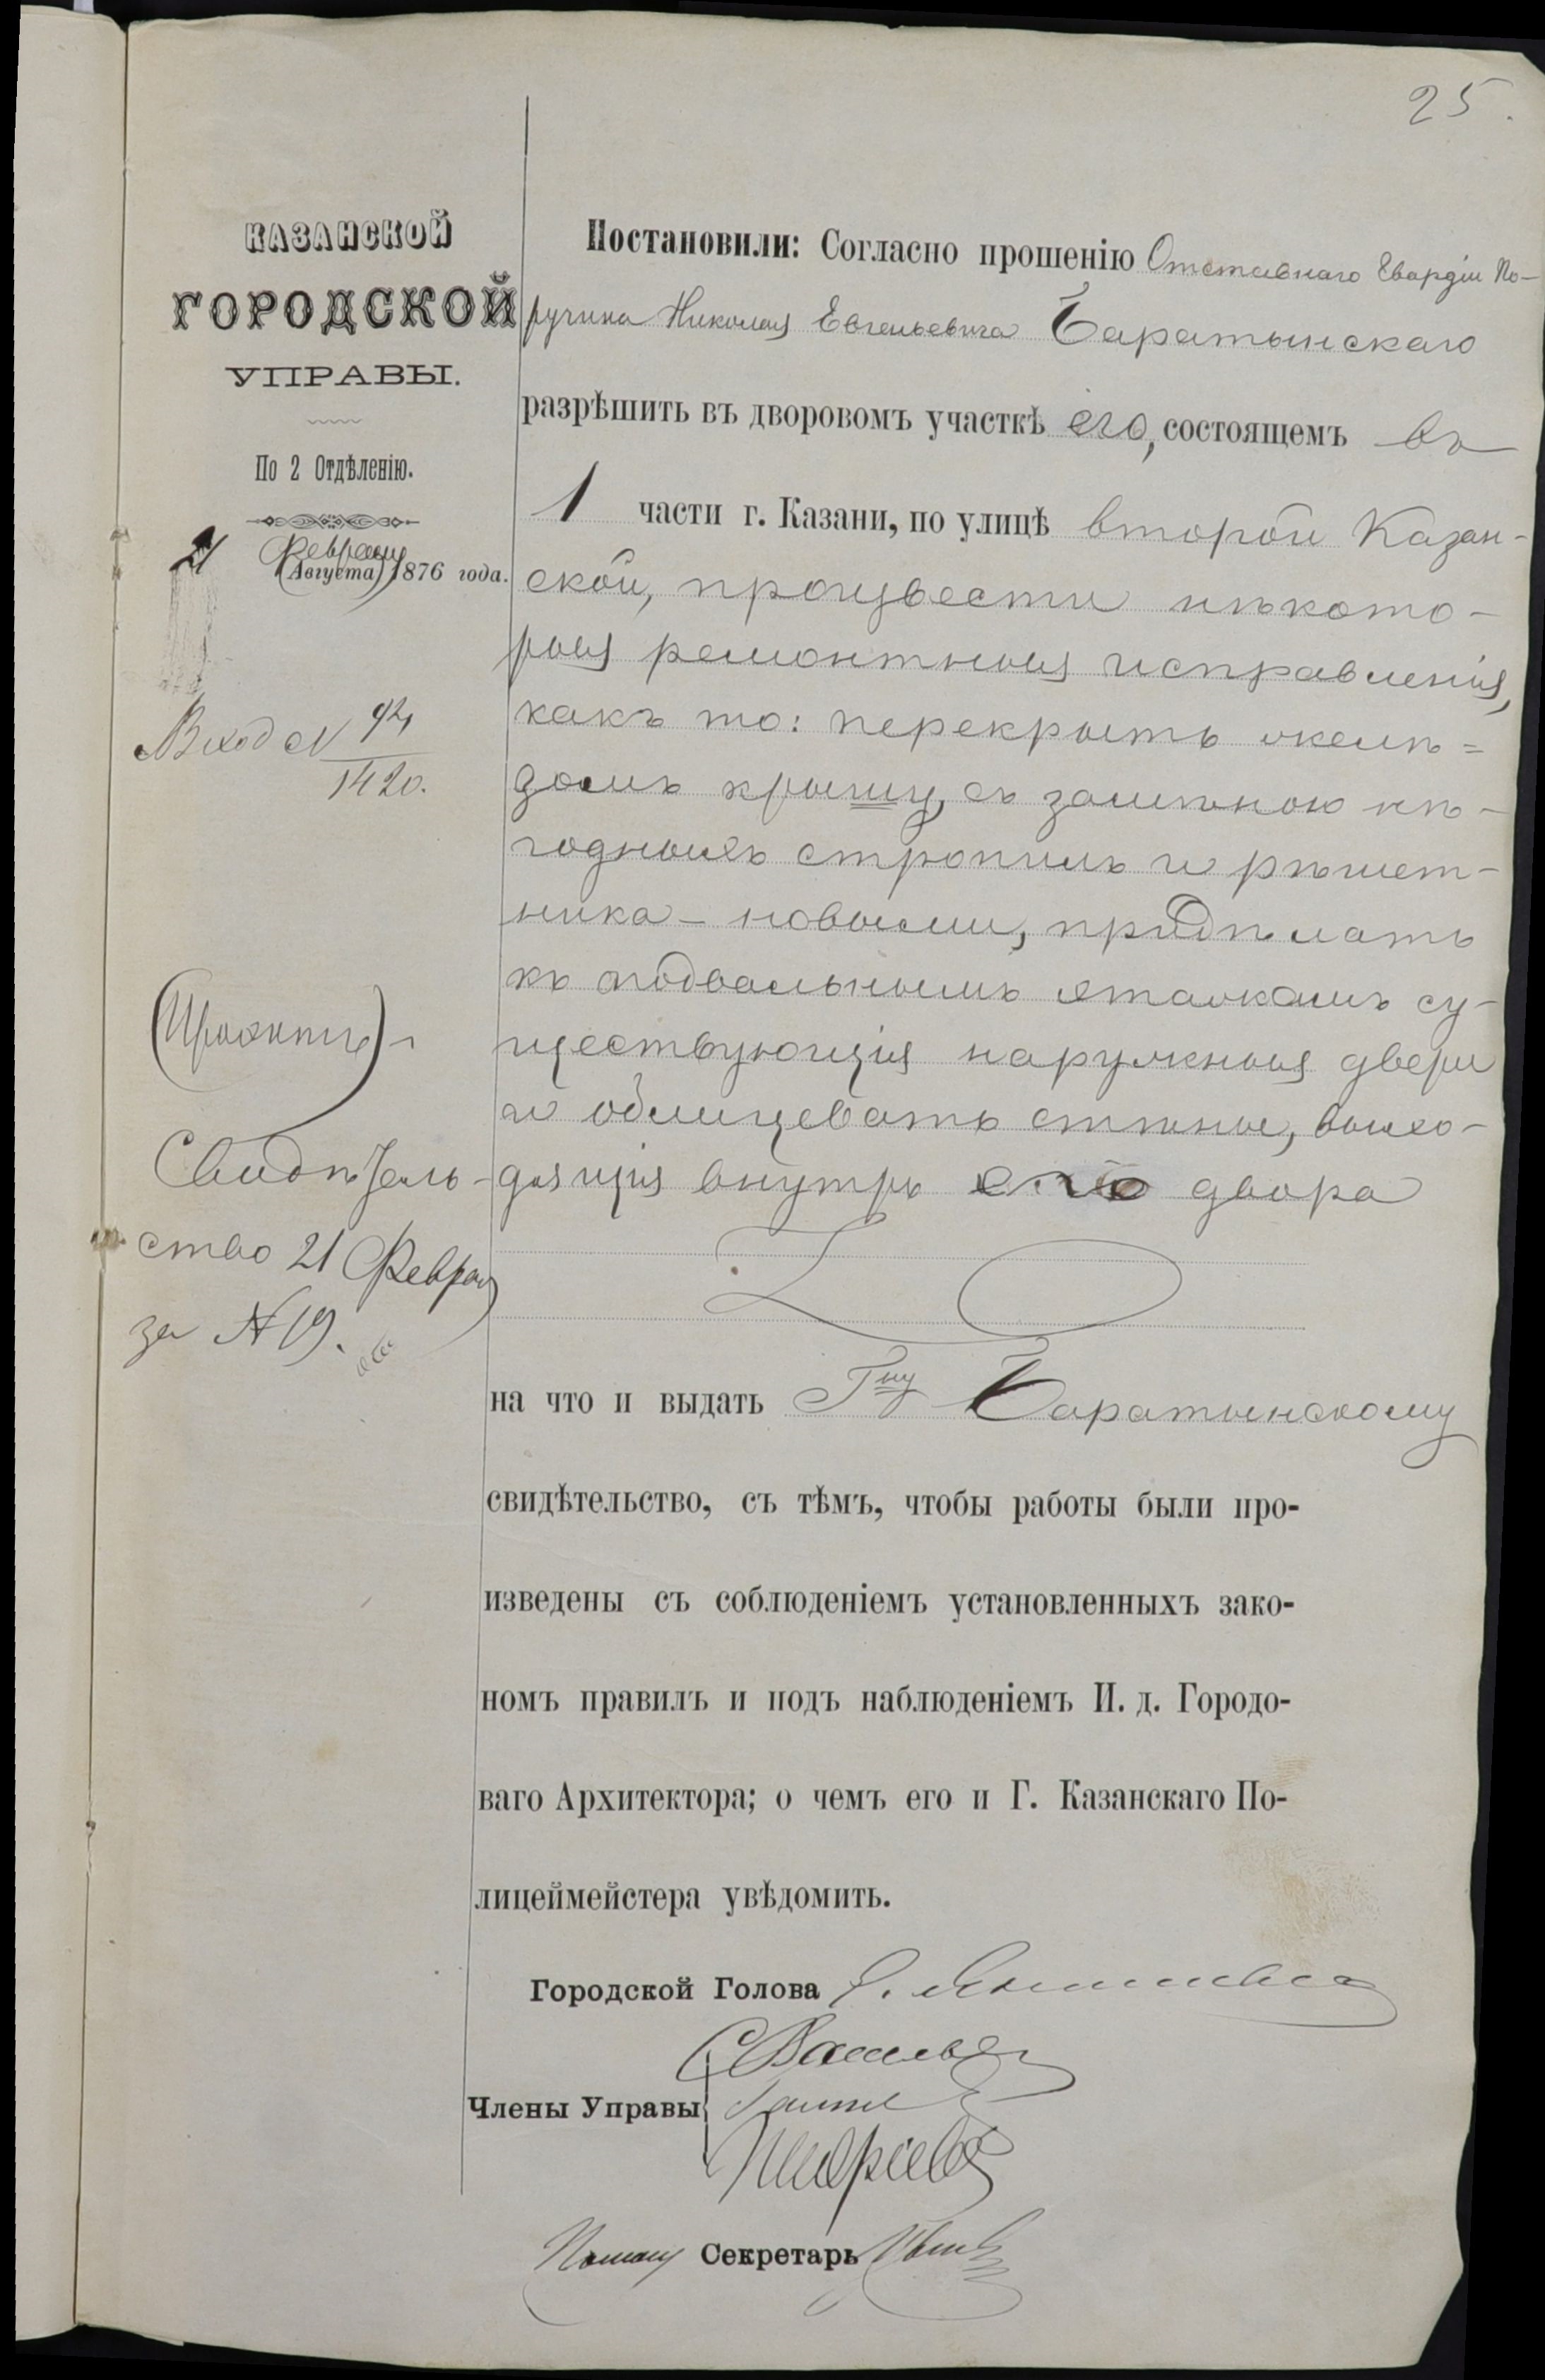 25.
КАЗАНСКОЙ
ГОРОДСКОЙ
УПРАВЫ.
По 2 Отдѣленію.
21 Февраля
(Августа) 1876 года.
Вход № 92/1420.
Свидѣтель-
ство 21 Февраля
за № 19.
Постановили: Согласно прошенію Отставнаго Гвардіи По-
ручика Николая Евгеньевича Баратынскаго
разрѣшить въ дворовомъ участкѣ его, состоящемъ въ
1 части г. Казани, по улицѣ второй Казан-
ской, произвести нѣкото-
рыя ремонтныя исправленія,
какъ то: перекрыть желѣ=
зомъ крышу, съ замѣною нѣ-
годныхъ стропилъ и рѣшет-
ника - новыми, придѣлать
къ подвальнымъ этажамъ су-
ществующія наружныя двери
и облицевать стѣны, выхо-
дящія внутрь его двора
на что и выдать Гну Баратынскому
свидѣтельство, съ тѣмъ, чтобы работы были про-
изведены съ соблюденіемъ установленныхъ зако-
номъ правилъ и подъ наблюденіемъ И. д. Городо-
ваго Архитектора; о чемъ его и Г. Казанскаго По-
лицеймейстера увѣдомить.
Городской Голова
СВасильев
Члены Управы
Секретарь